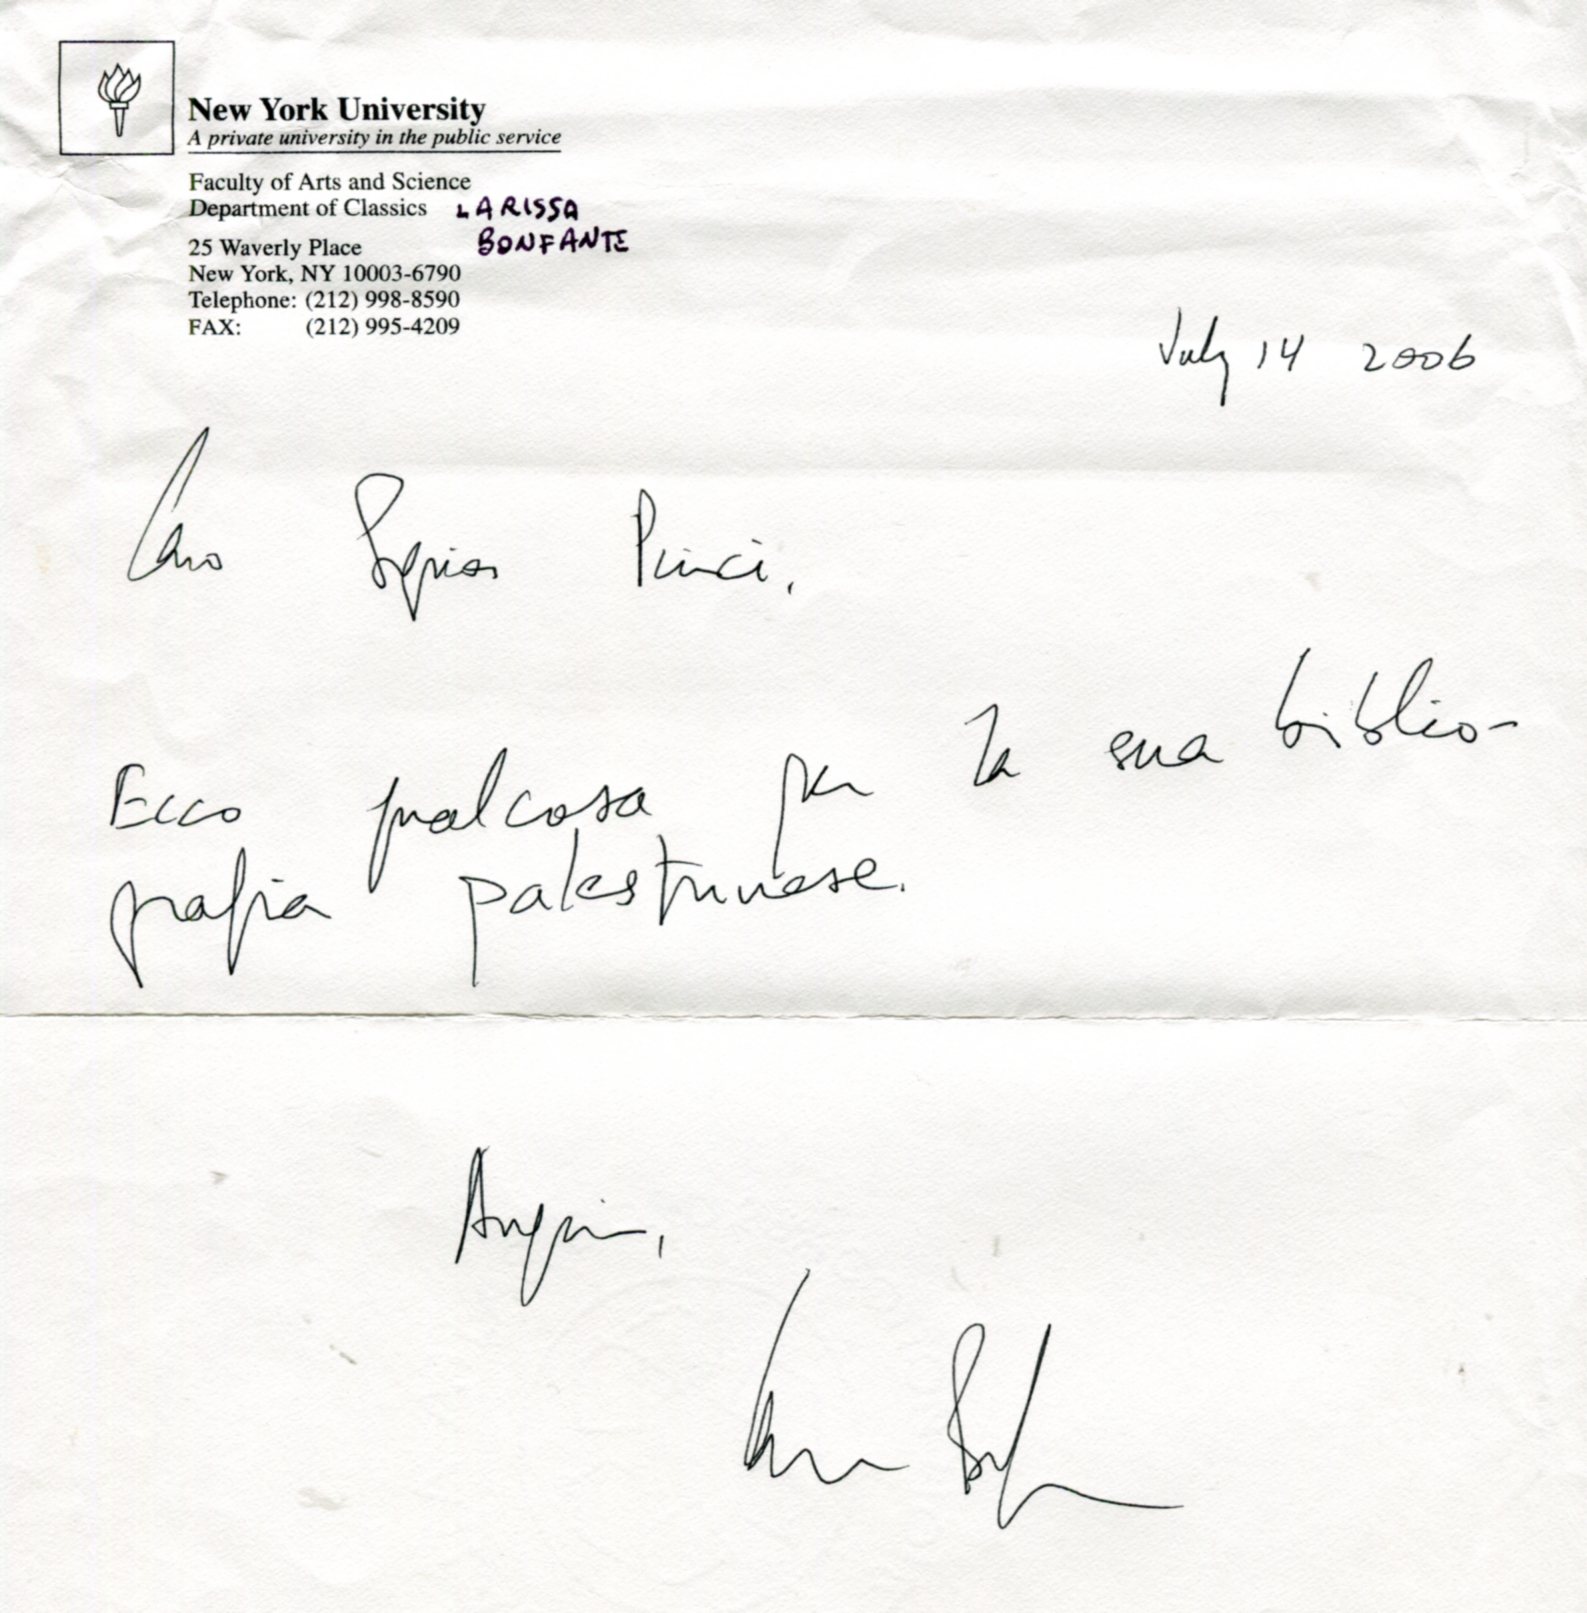 New York University
A private university in the public service
Faculty of Arts and Science
Department of Classics LARISSA
BONFANTE
25 Waverly Place
New York, NY 10003-6790
Telephone: (212) 998-8590
FAX: (212) 995-4209
July 14 2006
Caro Signor Pinci,
Ecco qualcosa per la sua biblio-
grafia palestrinese.
Auguri,
Larissa Bonfante